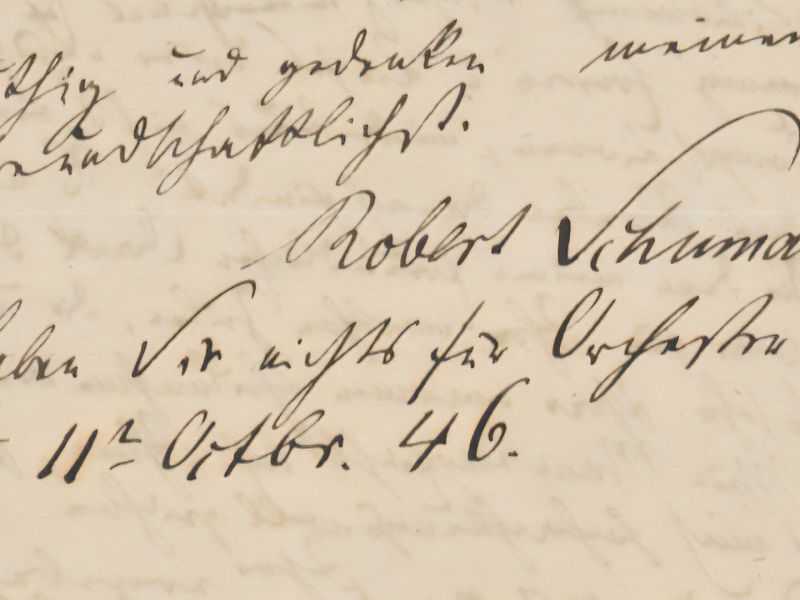 thig und gedenken meiner
eundschaftlichst.
Robert Schuma
aben Sie nichts für Orchester
11r Octbr. 46.